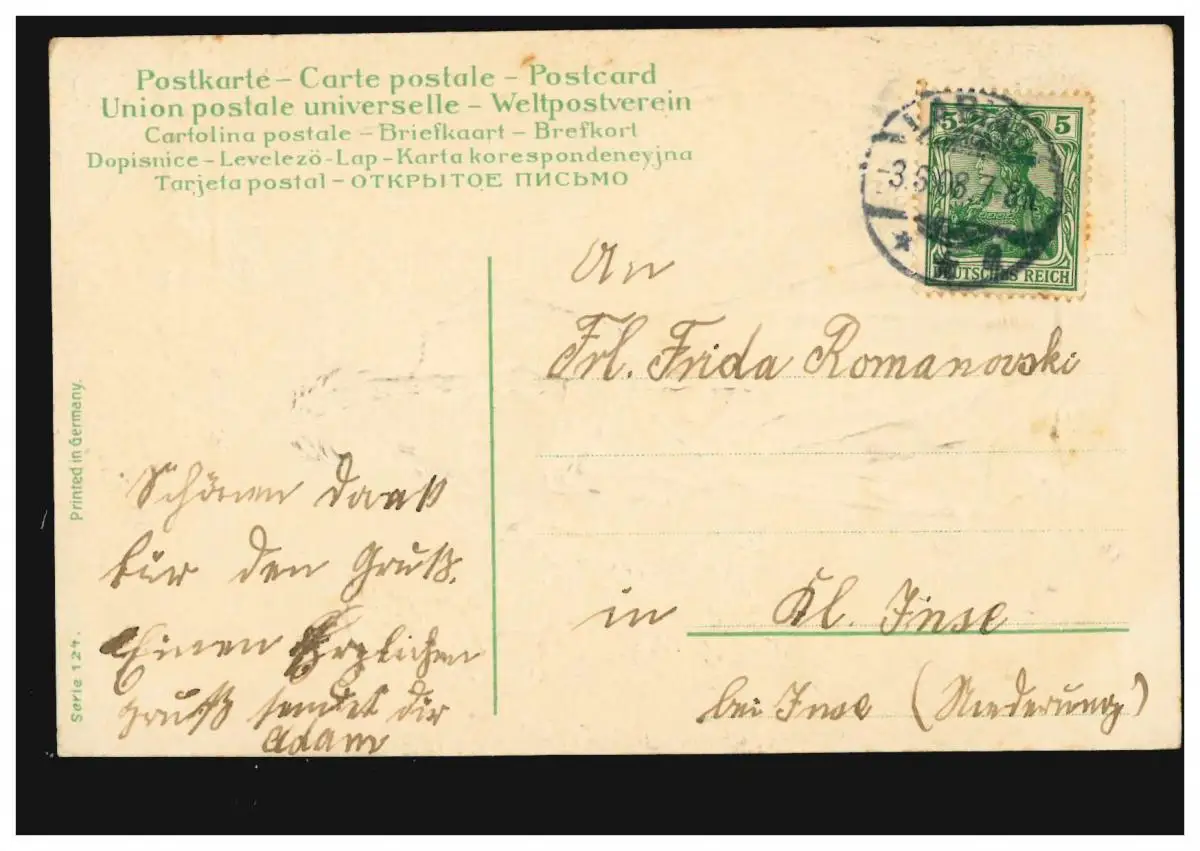 Postkarte – Carte postale – Postcard
Union postale universelle – Weltpostverein
Cartolina postale – Briefkaart – Brefkort
Dopisnice – Levelezö-Lap – Karta korespondencyjna
Tarjeta postal – ОТКРЫТОЕ ПИСЬМО
5 5
3.5.08.7-8
DEUTSCHES REICH
An
Frl. Frida Romanovski
in Kl. Inse
bei Inse (Niederung)
Schönen Dank
für den Gruß.
Einen Herzlichen
gruß sendet dir
Adam
Printed in Germany.
Serie 124.